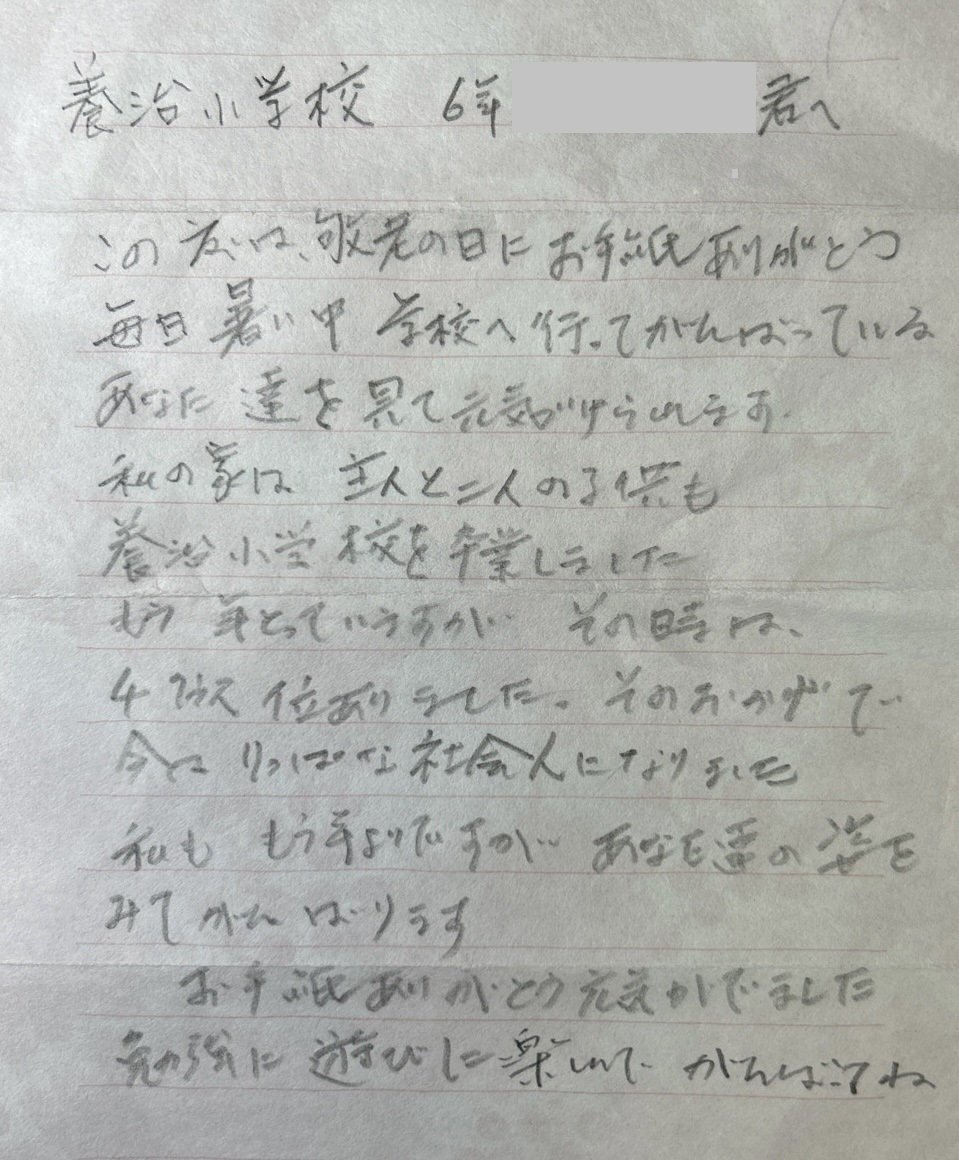 養治小学校 6年 君へ
この度は、敬老の日にお手紙ありがとう
毎日暑い中 学校へ行ってがんばっている
あなた達を見て元気づけられます。
私の家は 主人と二人の子供も
養治小学校を卒業しました
もう年とっていますが… その時は、
4クラス位ありました。そのおかげで
今は りっぱな社会人になりました
私も もう年よりですが… あなた達の姿を
みてがんばります
お手紙ありがとう元気がでました
勉強に遊びに楽しんで がんばってね